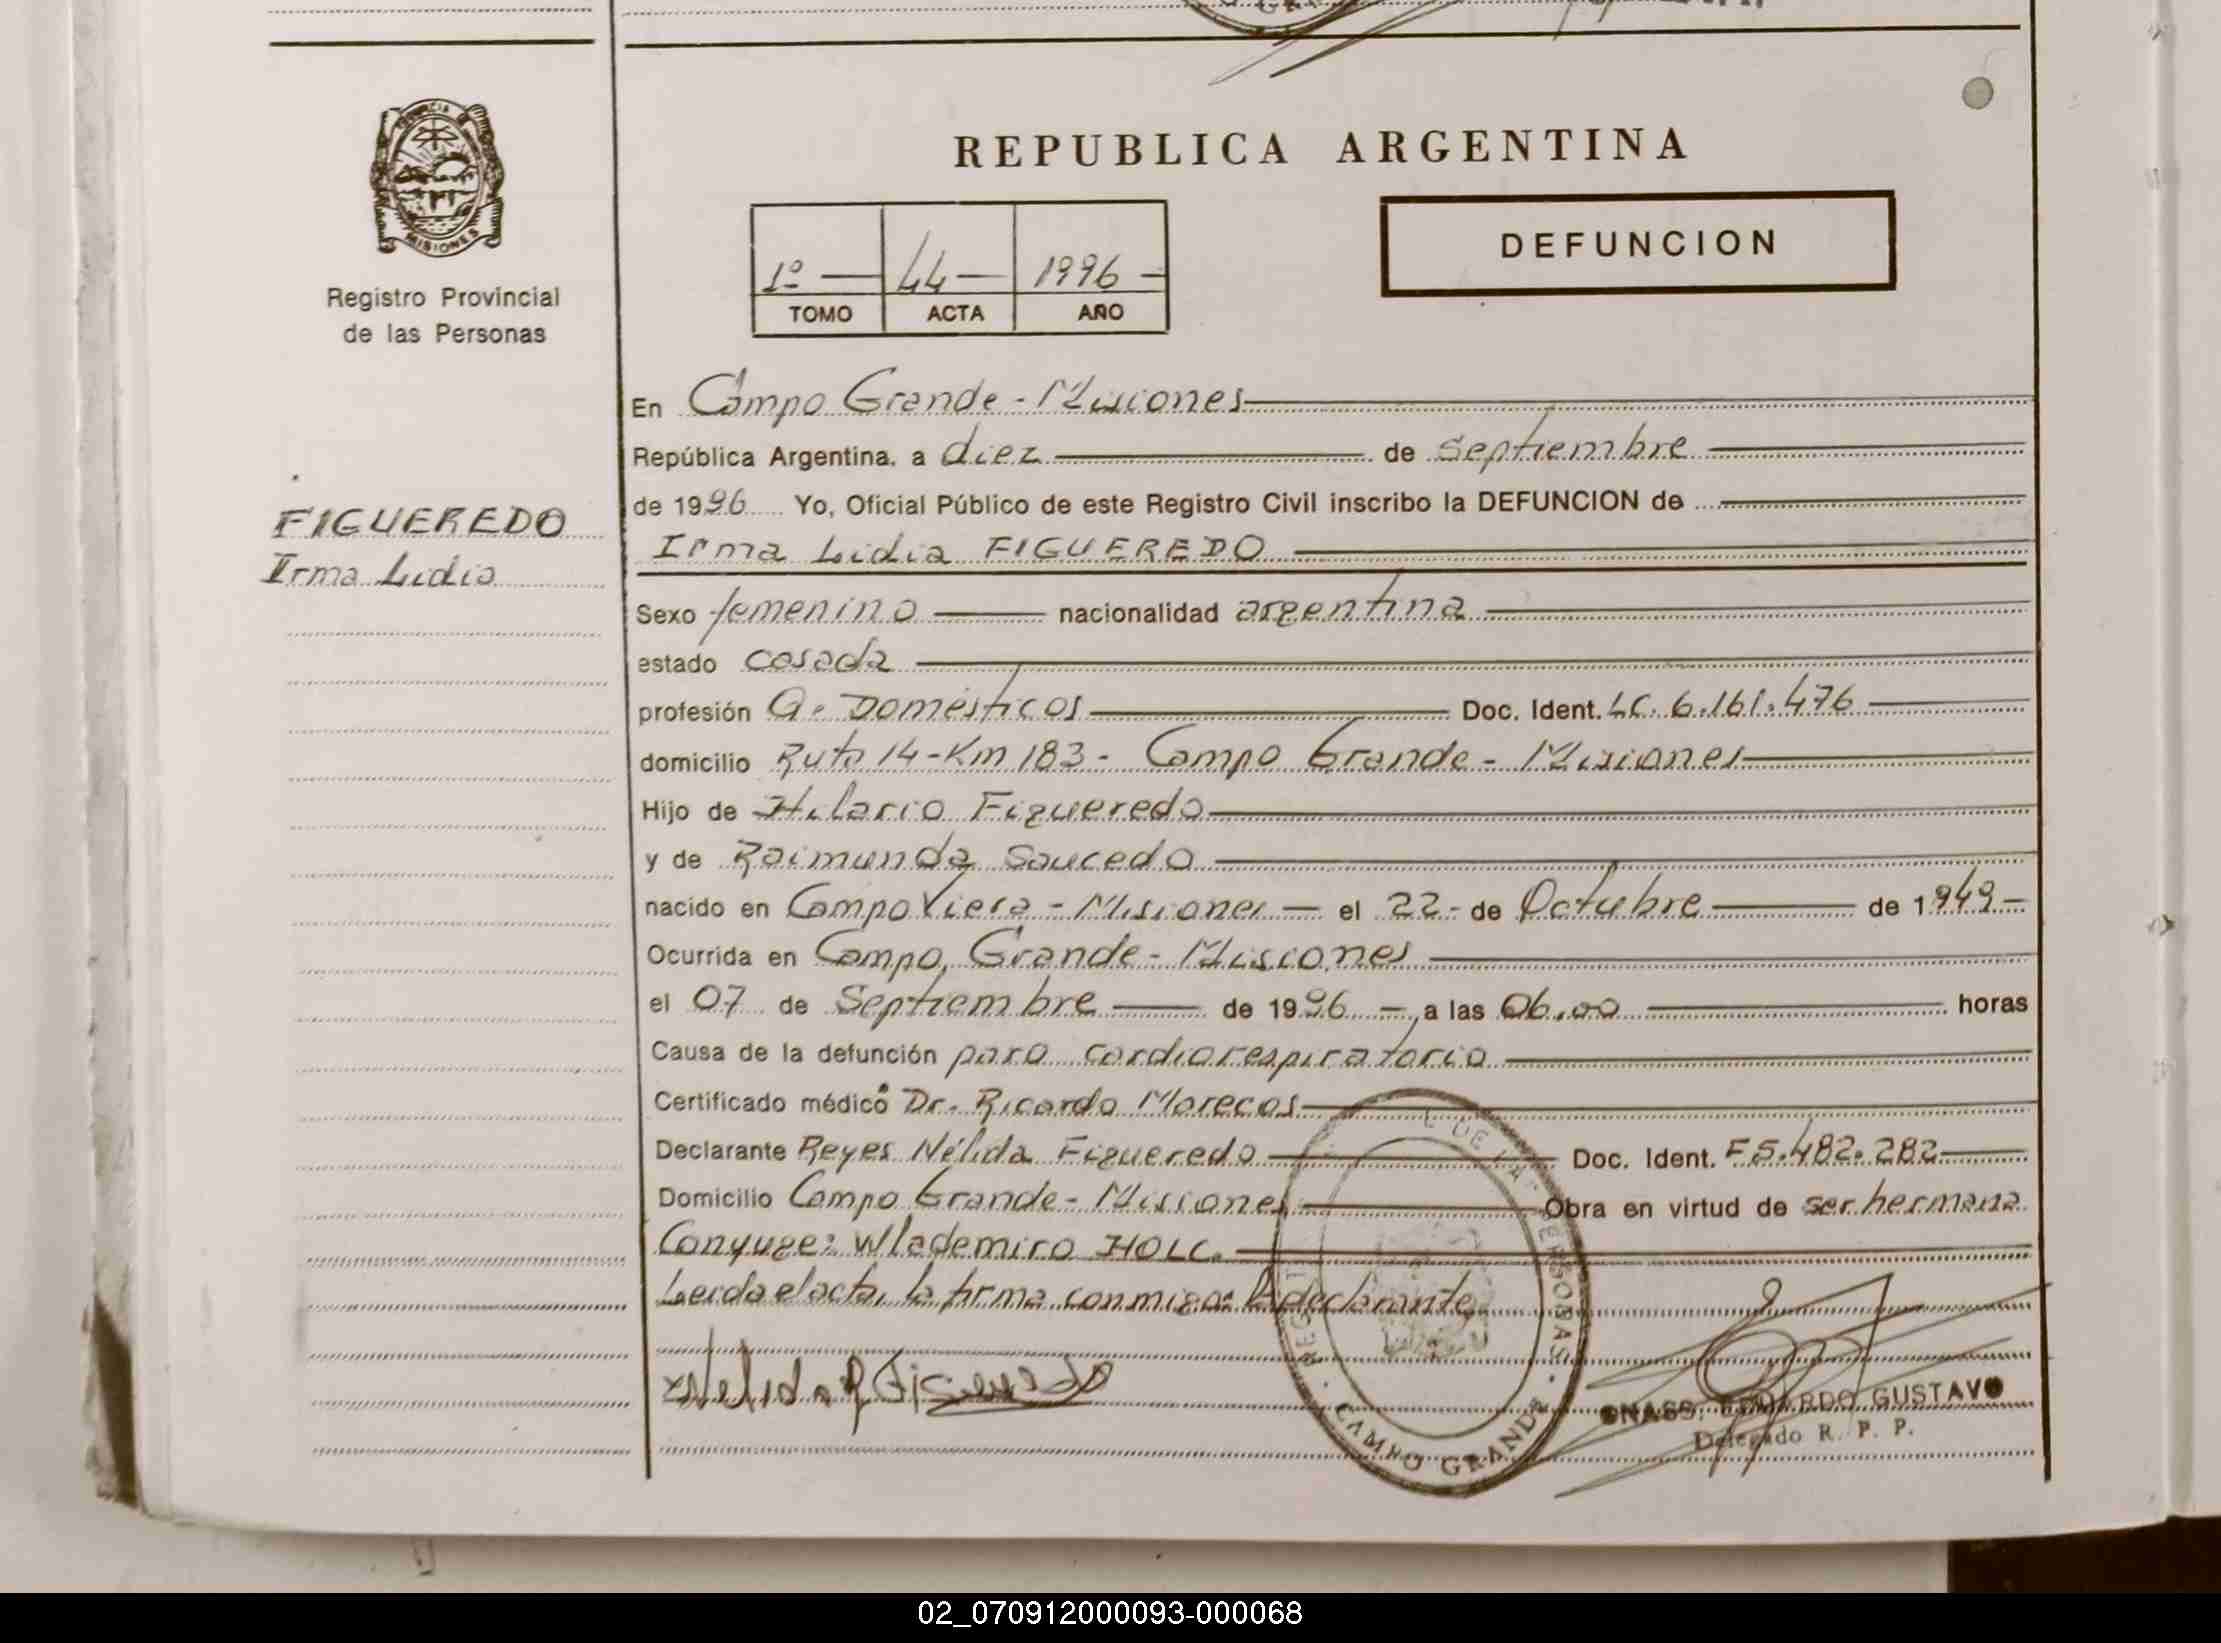 PROVINCIA
MISIONES
Registro Provincial
de las Personas
FIGUEREDO
Irma Lidia
REPUBLICA ARGENTINA
DEFUNCION
1º 44 1996
TOMO ACTA AÑO
En Campo Grande - Misiones
República Argentina, a diez de septiembre
de 1996 Yo, Oficial Público de este Registro Civil inscribo la DEFUNCION de
Irma Lidia FIGUEREDO
Sexo femenino nacionalidad argentina
estado casada
profesión Q. Domésticos Doc. Ident. LC. 6.161.476
domicilio Ruta 14 - Km 183 - Campo Grande - Misiones
Hijo de Hilario Figueredo
y de Raimunda Saucedo
nacido en Campo Viera - Misiones - el 22 - de Octubre de 1949 -
Ocurrida en Campo Grande - Misiones
el 07 de Septiembre de 1996 - a las 06.00 horas
Causa de la defunción paro cardiorespiratorio
Certificado médico Dr. Ricardo Morecos
Declarante Reyes Nélida Figueredo Doc. Ident. F 5.482.282
Domicilio Campo Grande - Misiones Obra en virtud de ser hermana
Conyuge: Wlademiro HOLC.
Leida el acta, la firma conmigo: la declarante
Nelida R Figueredo
EDUARDO GUSTAVO
Delegado R. P. P.
DE LAS PERSONAS
CAMPO GRANDE
02_070912000093-000068